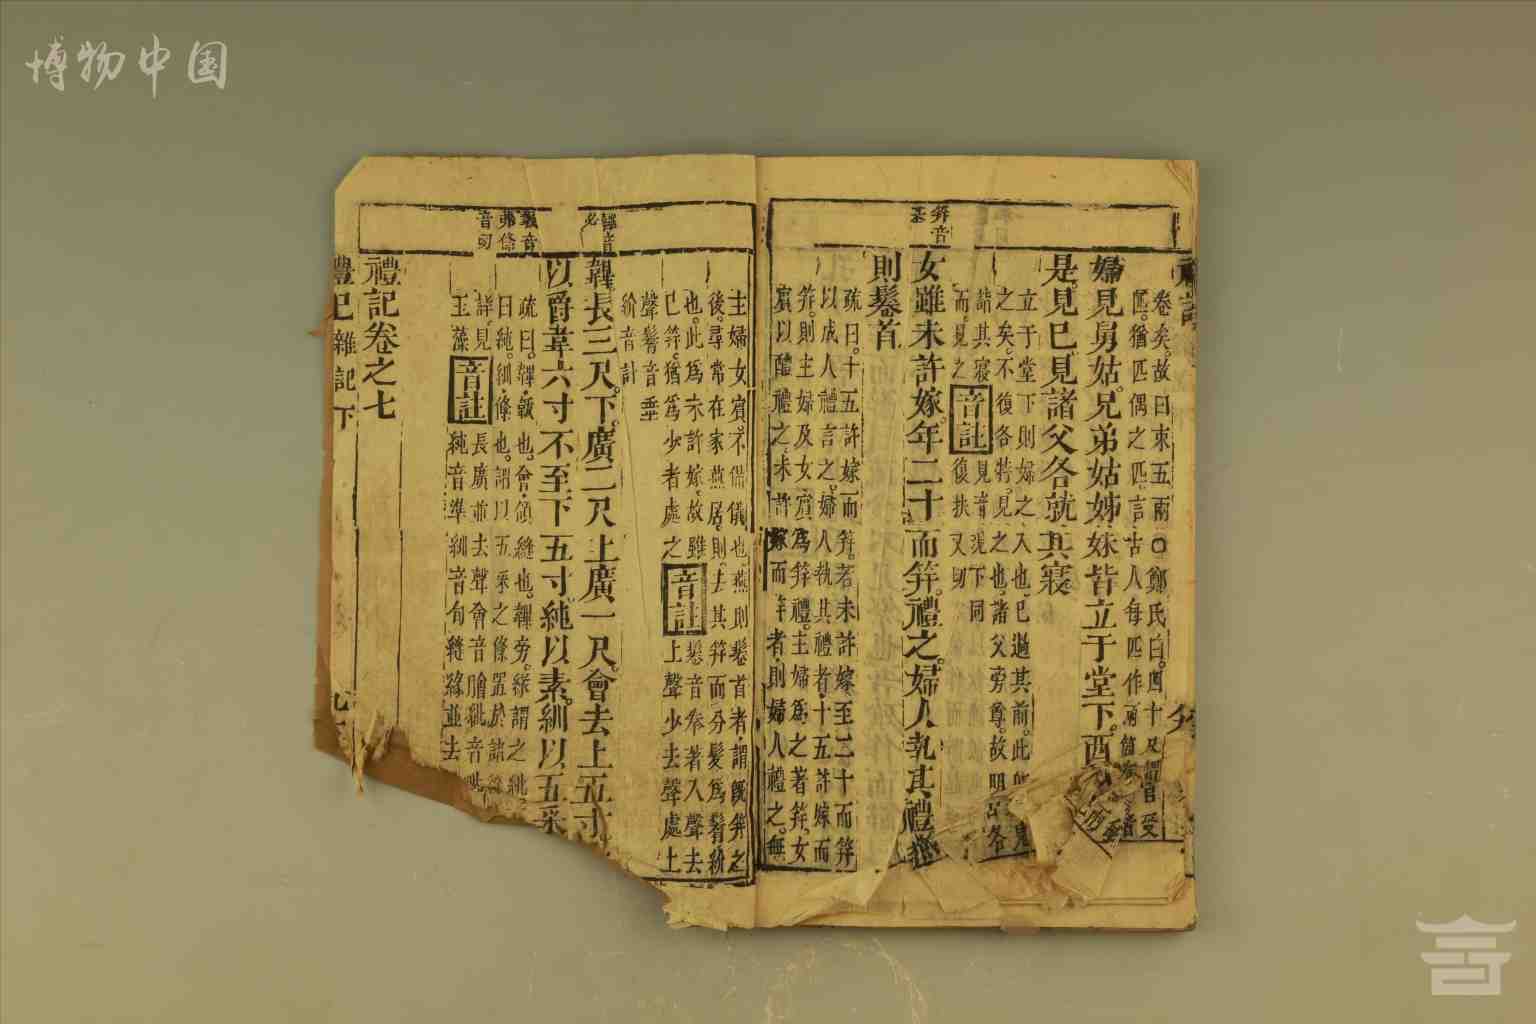 博物中国
卷矣。故曰束五兩○鄭氏曰。四十尺謂
匹。猶匹偶之匹。言古人每匹作兩箇卷
婦見舅姑。兄弟姑姊妹皆立于堂下。西
是。見已。見諸父各就其寢
立于堂下則婦之入也。已過其前。此
之矣。不復各特。見之也。諸父旁尊。故明日各
詣其寢
而。見之
音註
見音現下同
復扶又切
笄音
女雖未許嫁。年二十而笄。禮之。婦人執其禮
則鬈首
疏曰。十五許嫁而笄。若未許嫁至二十而笄
以成人禮言之。婦人執其禮者。十五許嫁而
笄。則主婦及女賓爲笄禮。主婦爲之著笄。女
賓以醴禮之。未許嫁而笄者。則婦人禮之。無
主婦女賓不備儀也。燕則鬈首者。謂旣笄之
後。尋常在家燕居。則去其笄而分髮爲鬌紒
也。此爲未許嫁。故雖
已笄。猶爲少者處之
音註
鬈音拳著入聲去
上聲少去聲處上
聲鬌音垂
紒音計
韠音
必
韠。長三尺。下廣二尺。上廣一尺。會去上五寸。
以爵韋六寸不至下五寸。純以素。紃以五采
音
條
音旬
疏曰。韠。韍也。會。領縫也。韠旁。緣謂之紕
曰純。紃。條也。謂以五采之條置於諸縫
詳見
玉藻
音註
長廣並去聲會音膾紕音
純音準紃音旬縫緣並去
禮記卷之七
禮記 雜記下